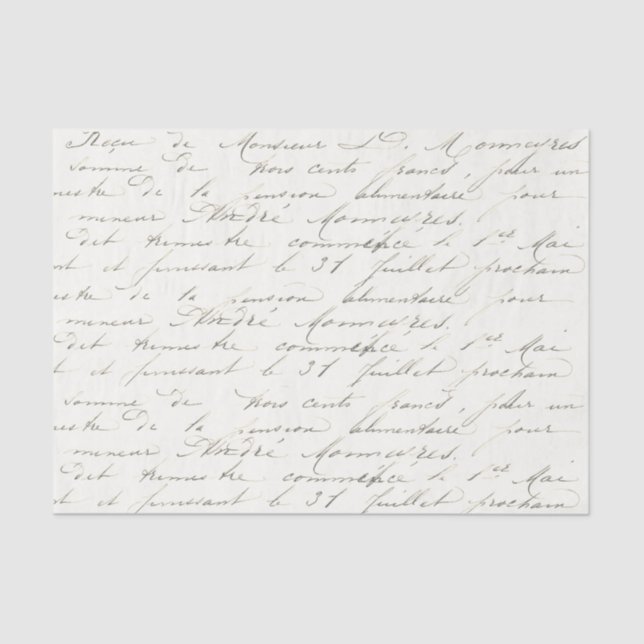 Reçu de Monsieur L D. Monnieyres
somme de trois cents francs, pour un
mestre de la pension alimentaire pour
mineur André Monnieyres.
dit trimestre commencé le 1er Mai
nt et finissant le 31 Juillet prochain
estre de la pension alimentaire pour
mineur André Monnieyres.
Dit trimestre commencé le 1er Mai
nt et finissant le 31 Juillet prochain
somme de trois cents francs, pour un
estre de la pension alimentaire pour
mineur André Monnieyres.
dit trimestre commencé le 1er Mai
nt et finissant le 31 Juillet prochain